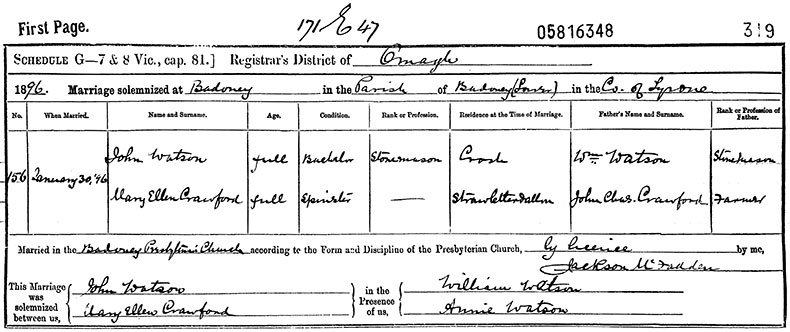 First Page. 171 E 47 05816348 319
SCHEDULE G—7 & 8 Vic., cap. 81.] Registrar's District of Omagh
1896. Marriage solemnized at Badoney in the Parish of Badoney (Lower) in the Co. of Tyrone
No. When Married. Name and Surname. Age. Condition. Rank or Profession. Residence at the Time of Marriage. Father's Name and Surname. Rank or Profession of Father.
John Watson full Bachelor Stonemason Crosh Wm Watson Stonemason
156 January 30, '96
Mary Ellen Crawford full Spinster — Strawletterdallon John Chas. Crawford Farmer
Married in the Badoney Presbyterian Church according to the Form and Discipline of the Presbyterian Church, by licence by me,
Jackson McFadden
This Marriage was solemnized between us, John Watson in the Presence of us, William Watson
Mary Ellen Crawford Annie Watson